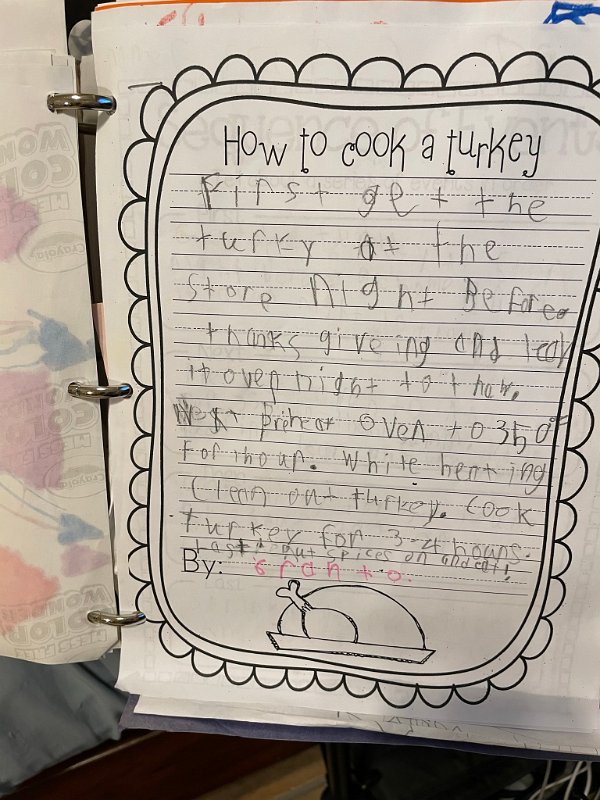 How to cook a turkey
First get the
turky at the
store night Before
thanks give ing and leav
it over night to thaw.
Next preheat oven to 350°F
For 1 hour. White heat ing
Clean out turkey. Cook
turkey for 3-4 hours.
Last put spices on and eat!
By:
Crayola